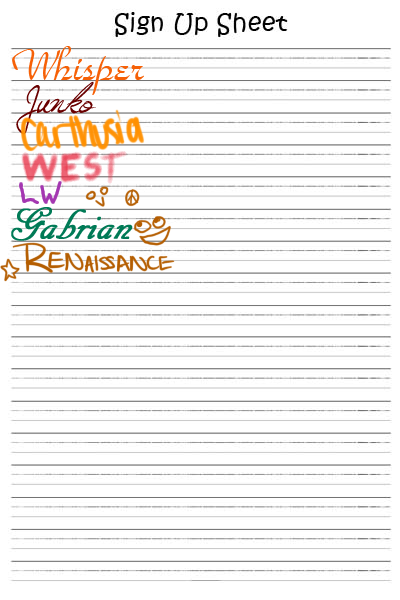 Sign Up Sheet
Whisper
Junko
Carthusia
WEST
LW
Gabrian
RENAISSANCE